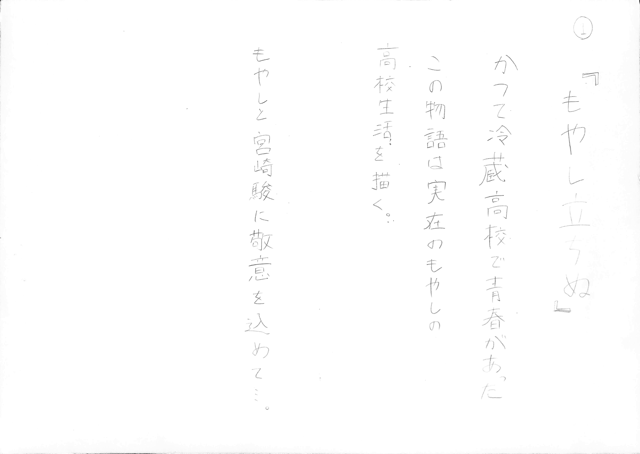 ①
『もやし立ちぬ』
かつて冷蔵高校で青春があった
この物語は実在のもやしの
高校生活を描く。
もやしと宮崎駿に敬意を込めて…。